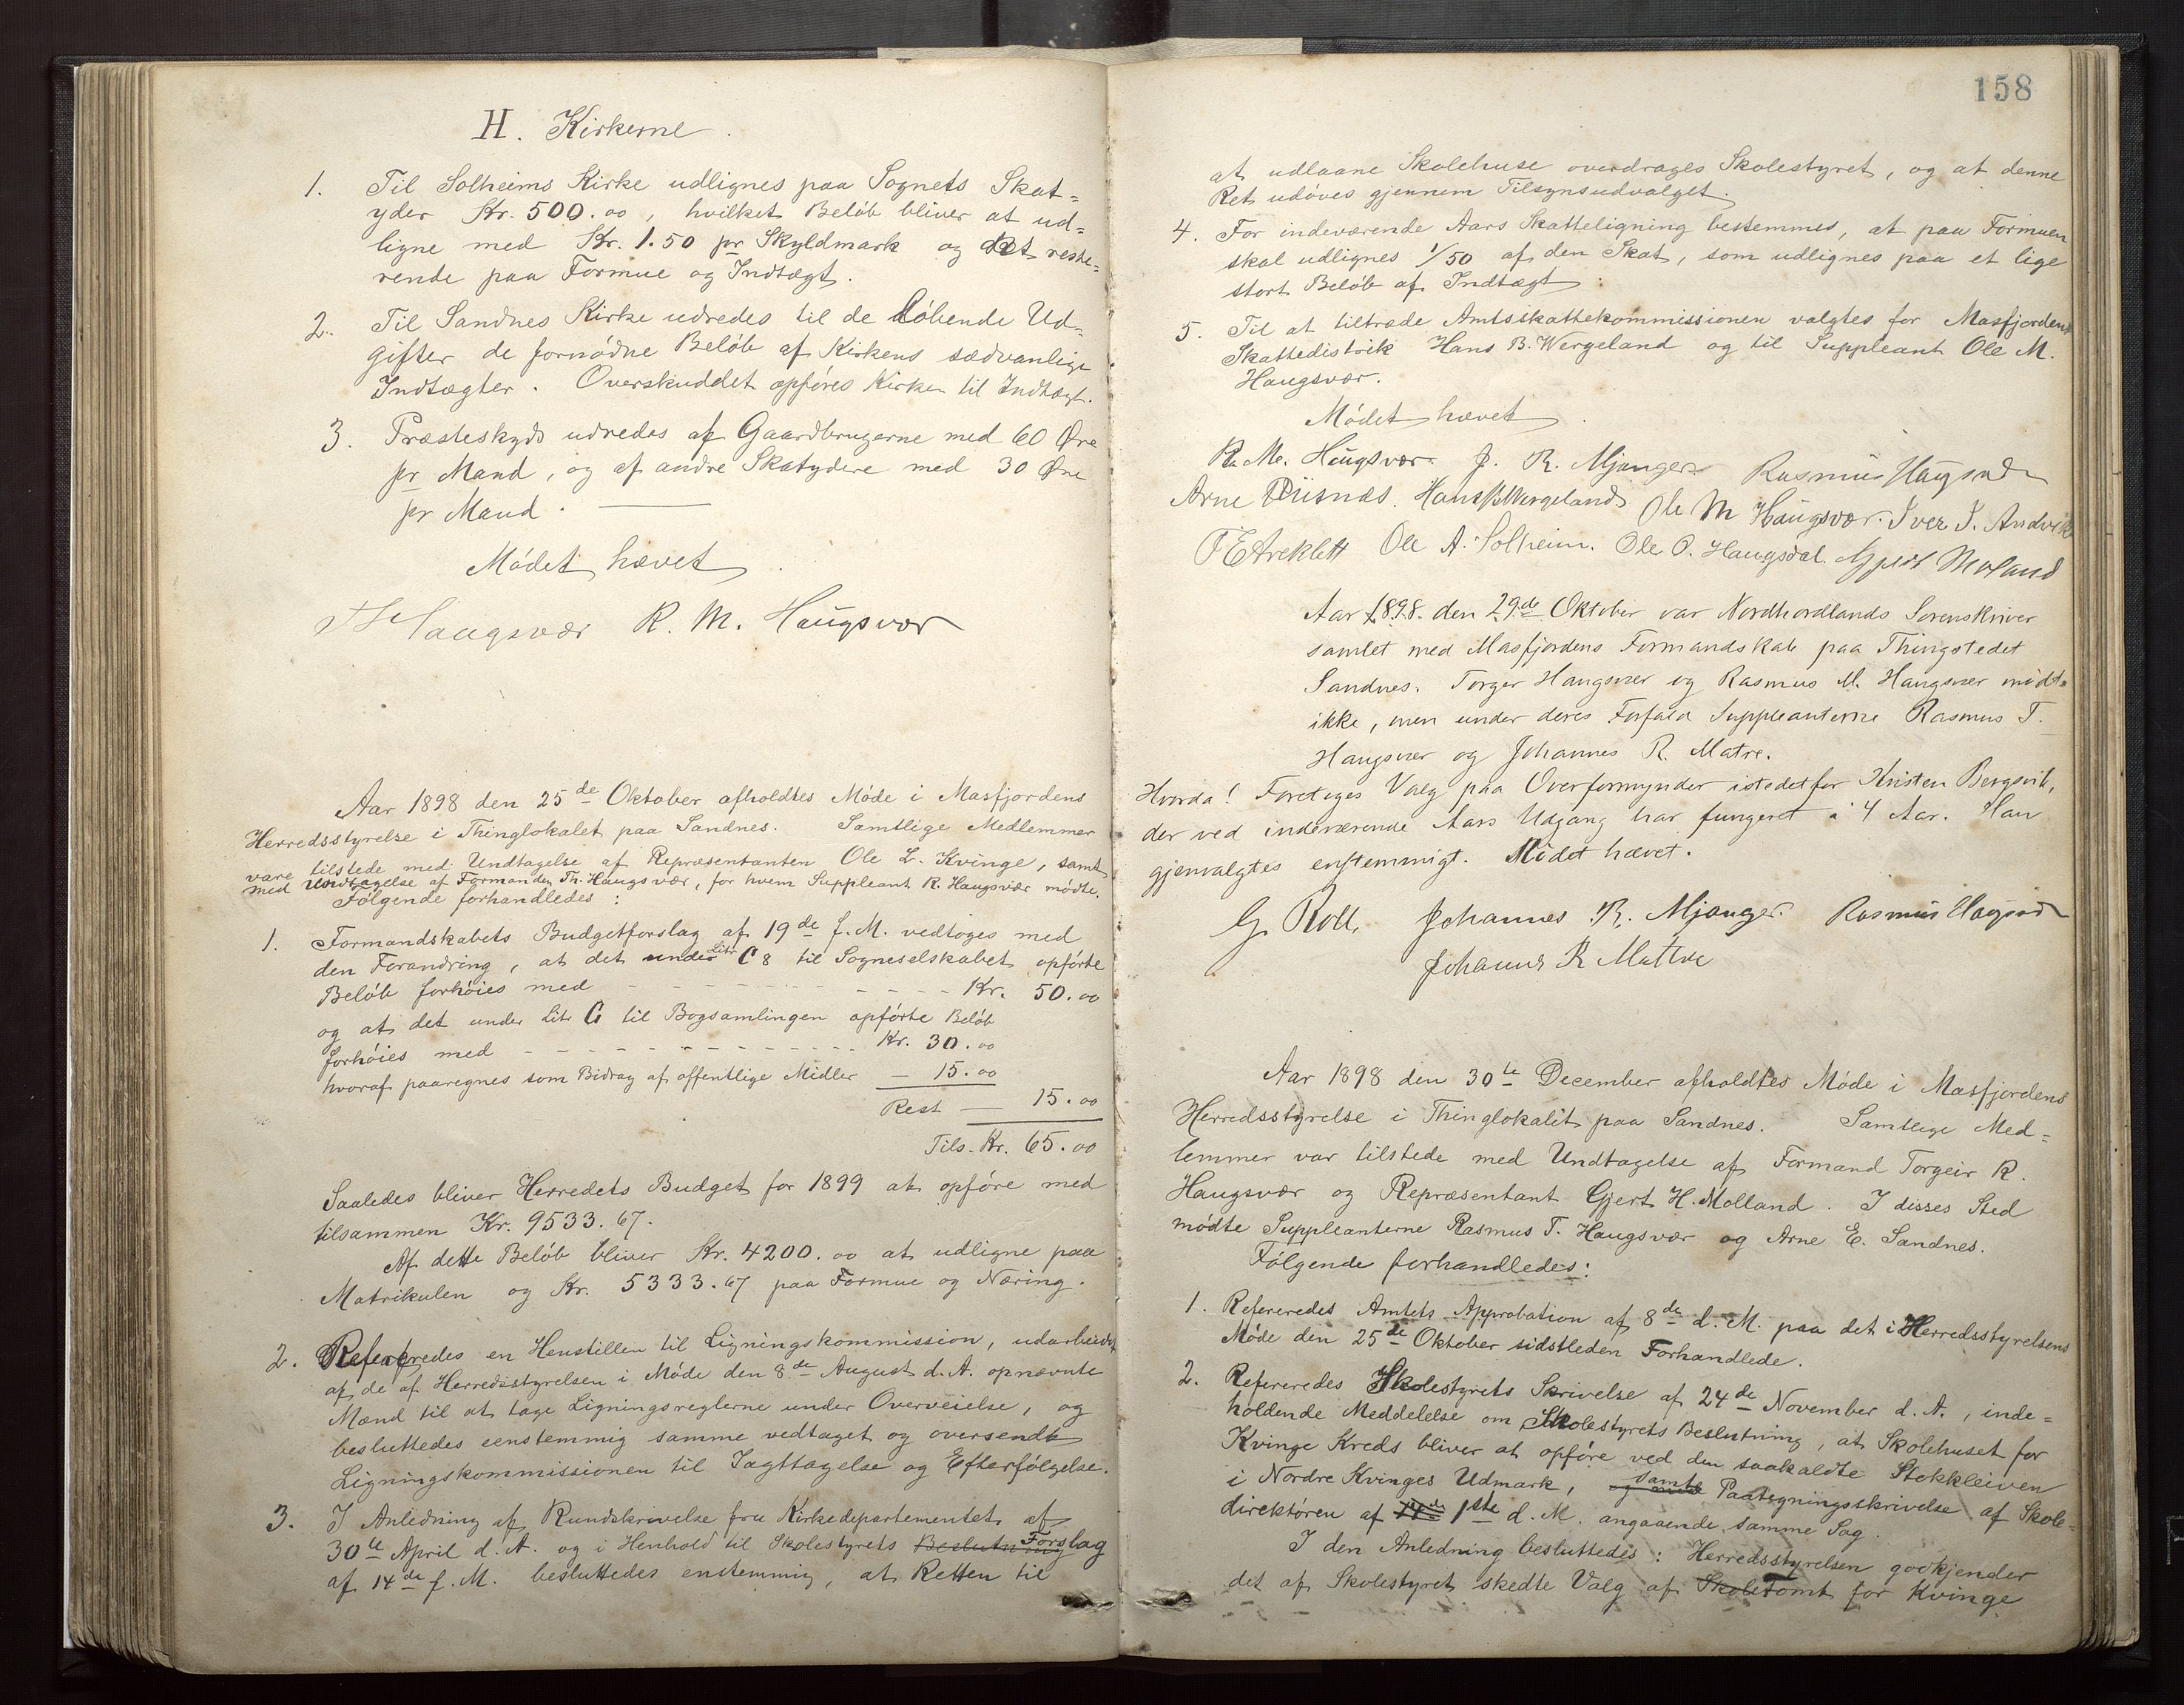 H. Kirkerne.
1. Til Solheims Kirke udlignes paa Sognets Skat-
yder Kr. 500.00, hvilket Beløb bliver at ud-
ligne med Kr. 1.50 pr Skyldmark og det reste-
rende paa Formue og Indtægt.
2. Til Sandnes Kirke udredes til de løbende Ud-
gifter de fornødne Beløb af Kirkens sædvanlige
Indtægter. Overskuddet opføres Kirken til Indtægt.
3. Præsteskyds udredes af Gaardbrugerne med 60 Øre
pr Mand, og af andre Skatydere med 30 Øre
pr Mand.
Mødet hævet.
Haugsvær R. M. Haugsvær
Aar 1898 den 25de Oktober afholdtes Møde i Masfjordens
Herredsstyrelse i Thinglokalet paa Sandnes. Samtlige Medlemmer
vare tilstede med Undtagelse af Repræsentanten Ole L. Kvinge, samt
med Undtagelse af Formanden Th. Haugsvær, for hvem Suppleant R. Haugsvær mødte.
Følgende forhandledes:
1. Formandskabets Budgetforslag af 19de f. M. vedtoges med
den Forandring, at det under Litr C 8 til Sogneselskabet opførte
Beløb forhøies med Kr. 50.00
og at det under Litr G til Bogsamlingen opførte Beløb
forhøies med Kr. 30.00
hvoraf paaregnes som Bidrag af offentlige Midler — 15.00
Rest — 15.00
Tils. Kr. 65.00
Saaledes bliver Herredets Budget for 1899 at opføre med
tilsammen Kr. 9533.67.
Af dette Beløb bliver Kr. 4200.00 at udligne paa
Matrikulen og Kr. 5333.67 paa Formue og Næring.
2. Refereredes en Henstillen til Ligningskommission, udarbeidet
af de af Herredsstyrelsen i Møde den 8de August d. A. opnævnte
Mænd til at tage Ligningsreglerne under Overveielse, og
besluttedes eenstemmig samme vedtaget og oversendt
Ligningskommissionen til Iagttagelse og Efterfølgelse.
3. I Anledning af Rundskrivelse fra Kirkedepartementet af
30te April d. A. og i Henhold til Skolestyrets Beslutning Forslag
af 14de f. M. besluttedes enstemmig, at Retten til
158
at udlaane Skolehuse overdrages Skolestyret, og at denne
Ret udøves gjennem Tilsynsudvalget.
4. For indeværende Aars Skatteligning bestemmes, at paa Formuen
skal udlignes 1/50 af den Skat, som udlignes paa et lige
stort Beløb af Indtægt.
5. Til at tiltræde Amtsskattekommissionen valgtes for Masfjordens
Skattedistrik Hans B. Wergeland og til Suppleant Ole M.
Haugsvær.
Mødet hævet.
R. M. Haugsvær. J. R. Mjanger Rasmus Haugsvær
Arne Risnes. Hans B Wergeland Ole M Haugsvær. Iver I. Andvik
Ole A. Solheim. Ole O. Haugsdal. Gjert Molland
Aar 1898 den 29de Oktober var Nordhordlands Sorenskriver
samlet med Masfjordens Formandskab paa Thingstedet
Sandnes. Torger Haugsvær og Rasmus M. Haugsvær mødte
ikke, men under deres Forfald Suppleanterne Rasmus T.
Haugsvær og Johannes R. Matre.
Hvorda! Foretoges Valg paa Overformynder istedetfor Kristen Bergsvik,
der ved indeværende Aars Udgang har fungeret i 4 Aar. Han
gjenvalgtes enstemmigt. Mødet hævet.
G. Roll, Johannes R. Mjanger. Rasmus Haugsvær
Johannes R Mattre
Aar 1898 den 30te December afholdtes Møde i Masfjordens
Herredsstyrelse i Thinglokalet paa Sandnes. Samtlige Med-
lemmer var tilstede med Undtagelse af Formand Torgeir R.
Haugsvær og Repræsentant Gjert H. Molland. I disses Sted
mødte Suppleanterne Rasmus T. Haugsvær og Arne E. Sandnes.
Følgende forhandledes:
1. Refereredes Amtets Approbation af 8de d. M. paa det i Herredsstyrelsens
Møde den 25de Oktober sidstleden Forhandlede.
2. Refereredes Skolestyrets Skrivelse af 24de November d. A., inde-
holdende Meddelelse om Skolestyrets Beslutning, at Skolehuset for
Kvinge Kreds bliver at opføre ved den saakaldte Stokkleiven
i Nordre Kvinges Udmark, og med samt Paategningsskrivelse af Skole-
direktøren af 1ste d. M. angaaende samme Sag.
I den Anledning besluttedes: Herredsstyrelsen godkjender
det af Skolestyret skedte Valg af Skoletomt for Kvinge